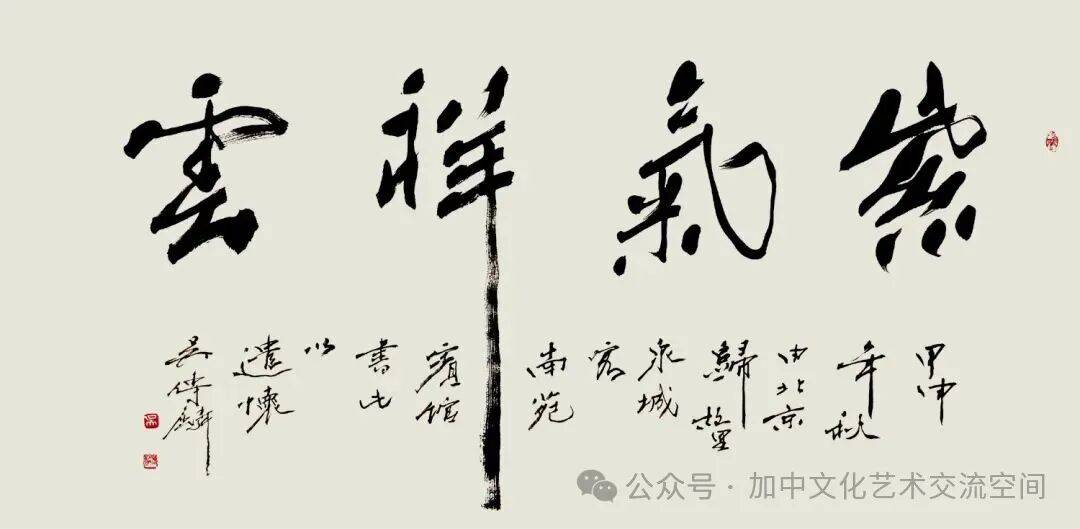 紫氣祥雲
甲申
年秋
由北京
歸
城
南苑
賓館
書此
以
遣懷
吴傳麟
公众号 · 加中文化艺术交流空间